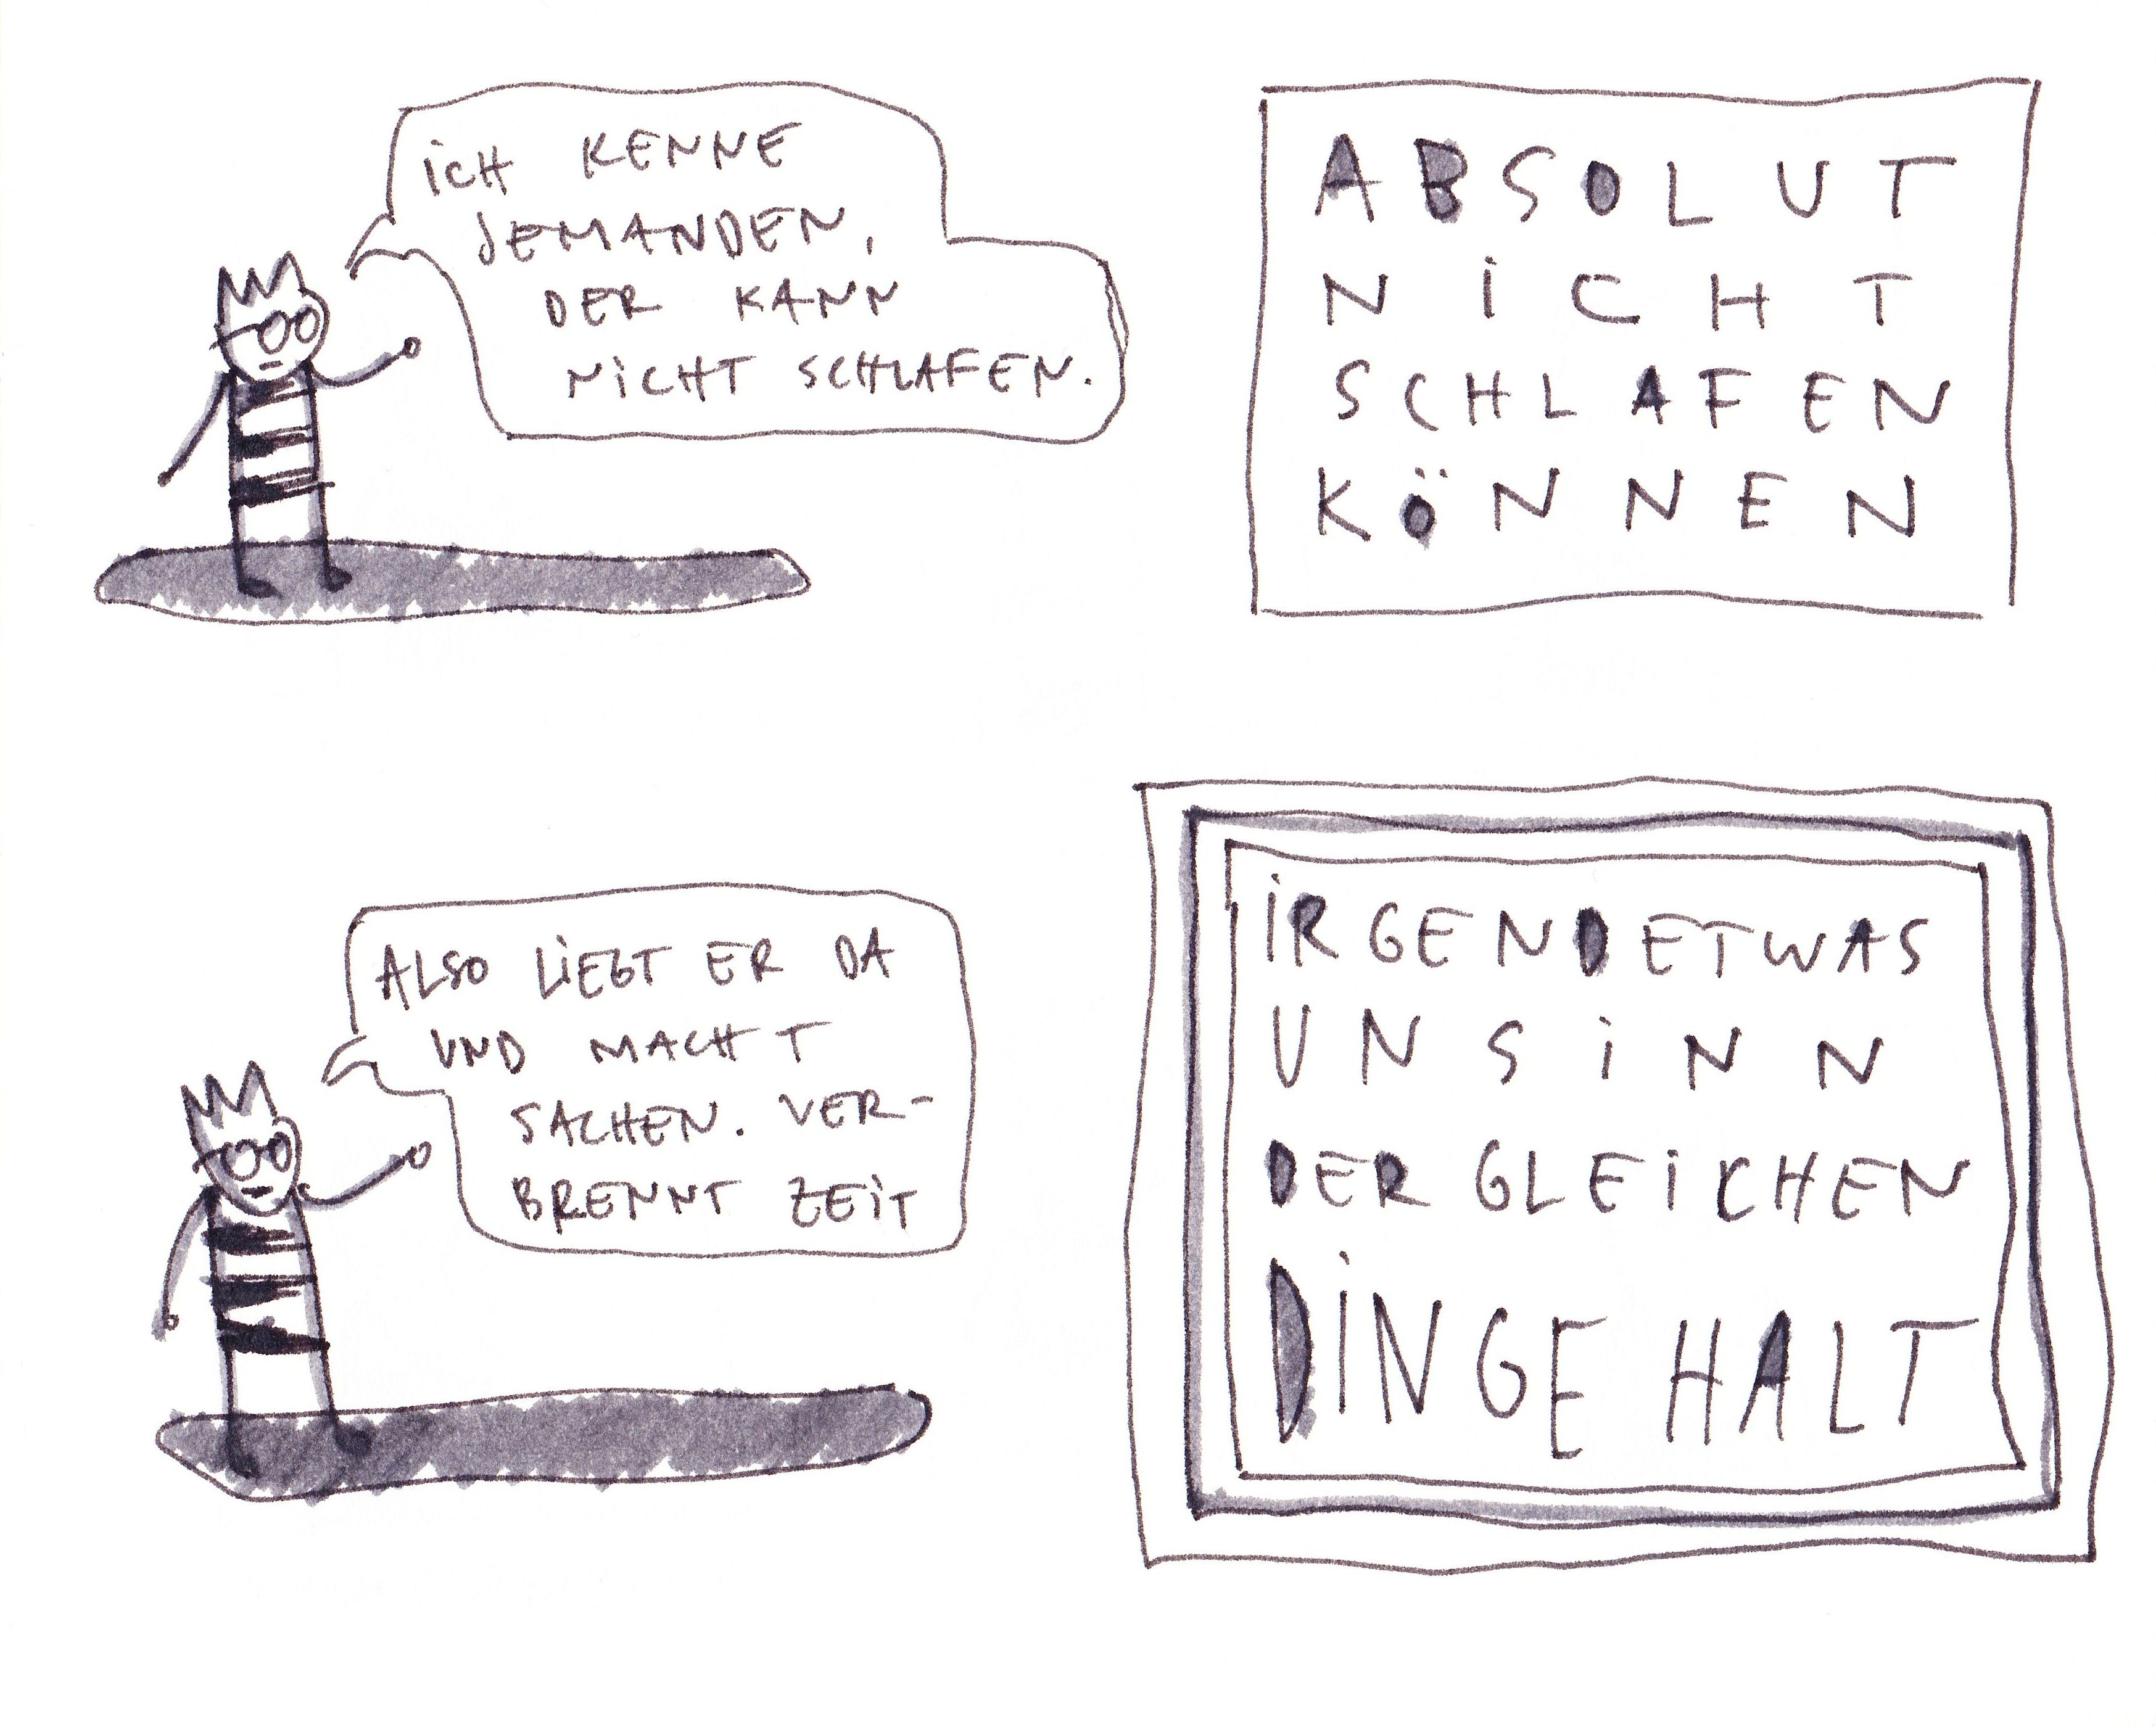 iCH KENNE
JEMANDEN,
DER KANN
NiCHT SCHLAFEN.
ABSOLUT
NiCHT
SCHLAFEN
KÖNNEN
ALSO LiEGT ER DA
UND MACHT
SACHEN. VER-
BRENNT ZEiT
iRGENDETWAS
UNSiNN
DERGLEiCHEN
DiNGE HALT